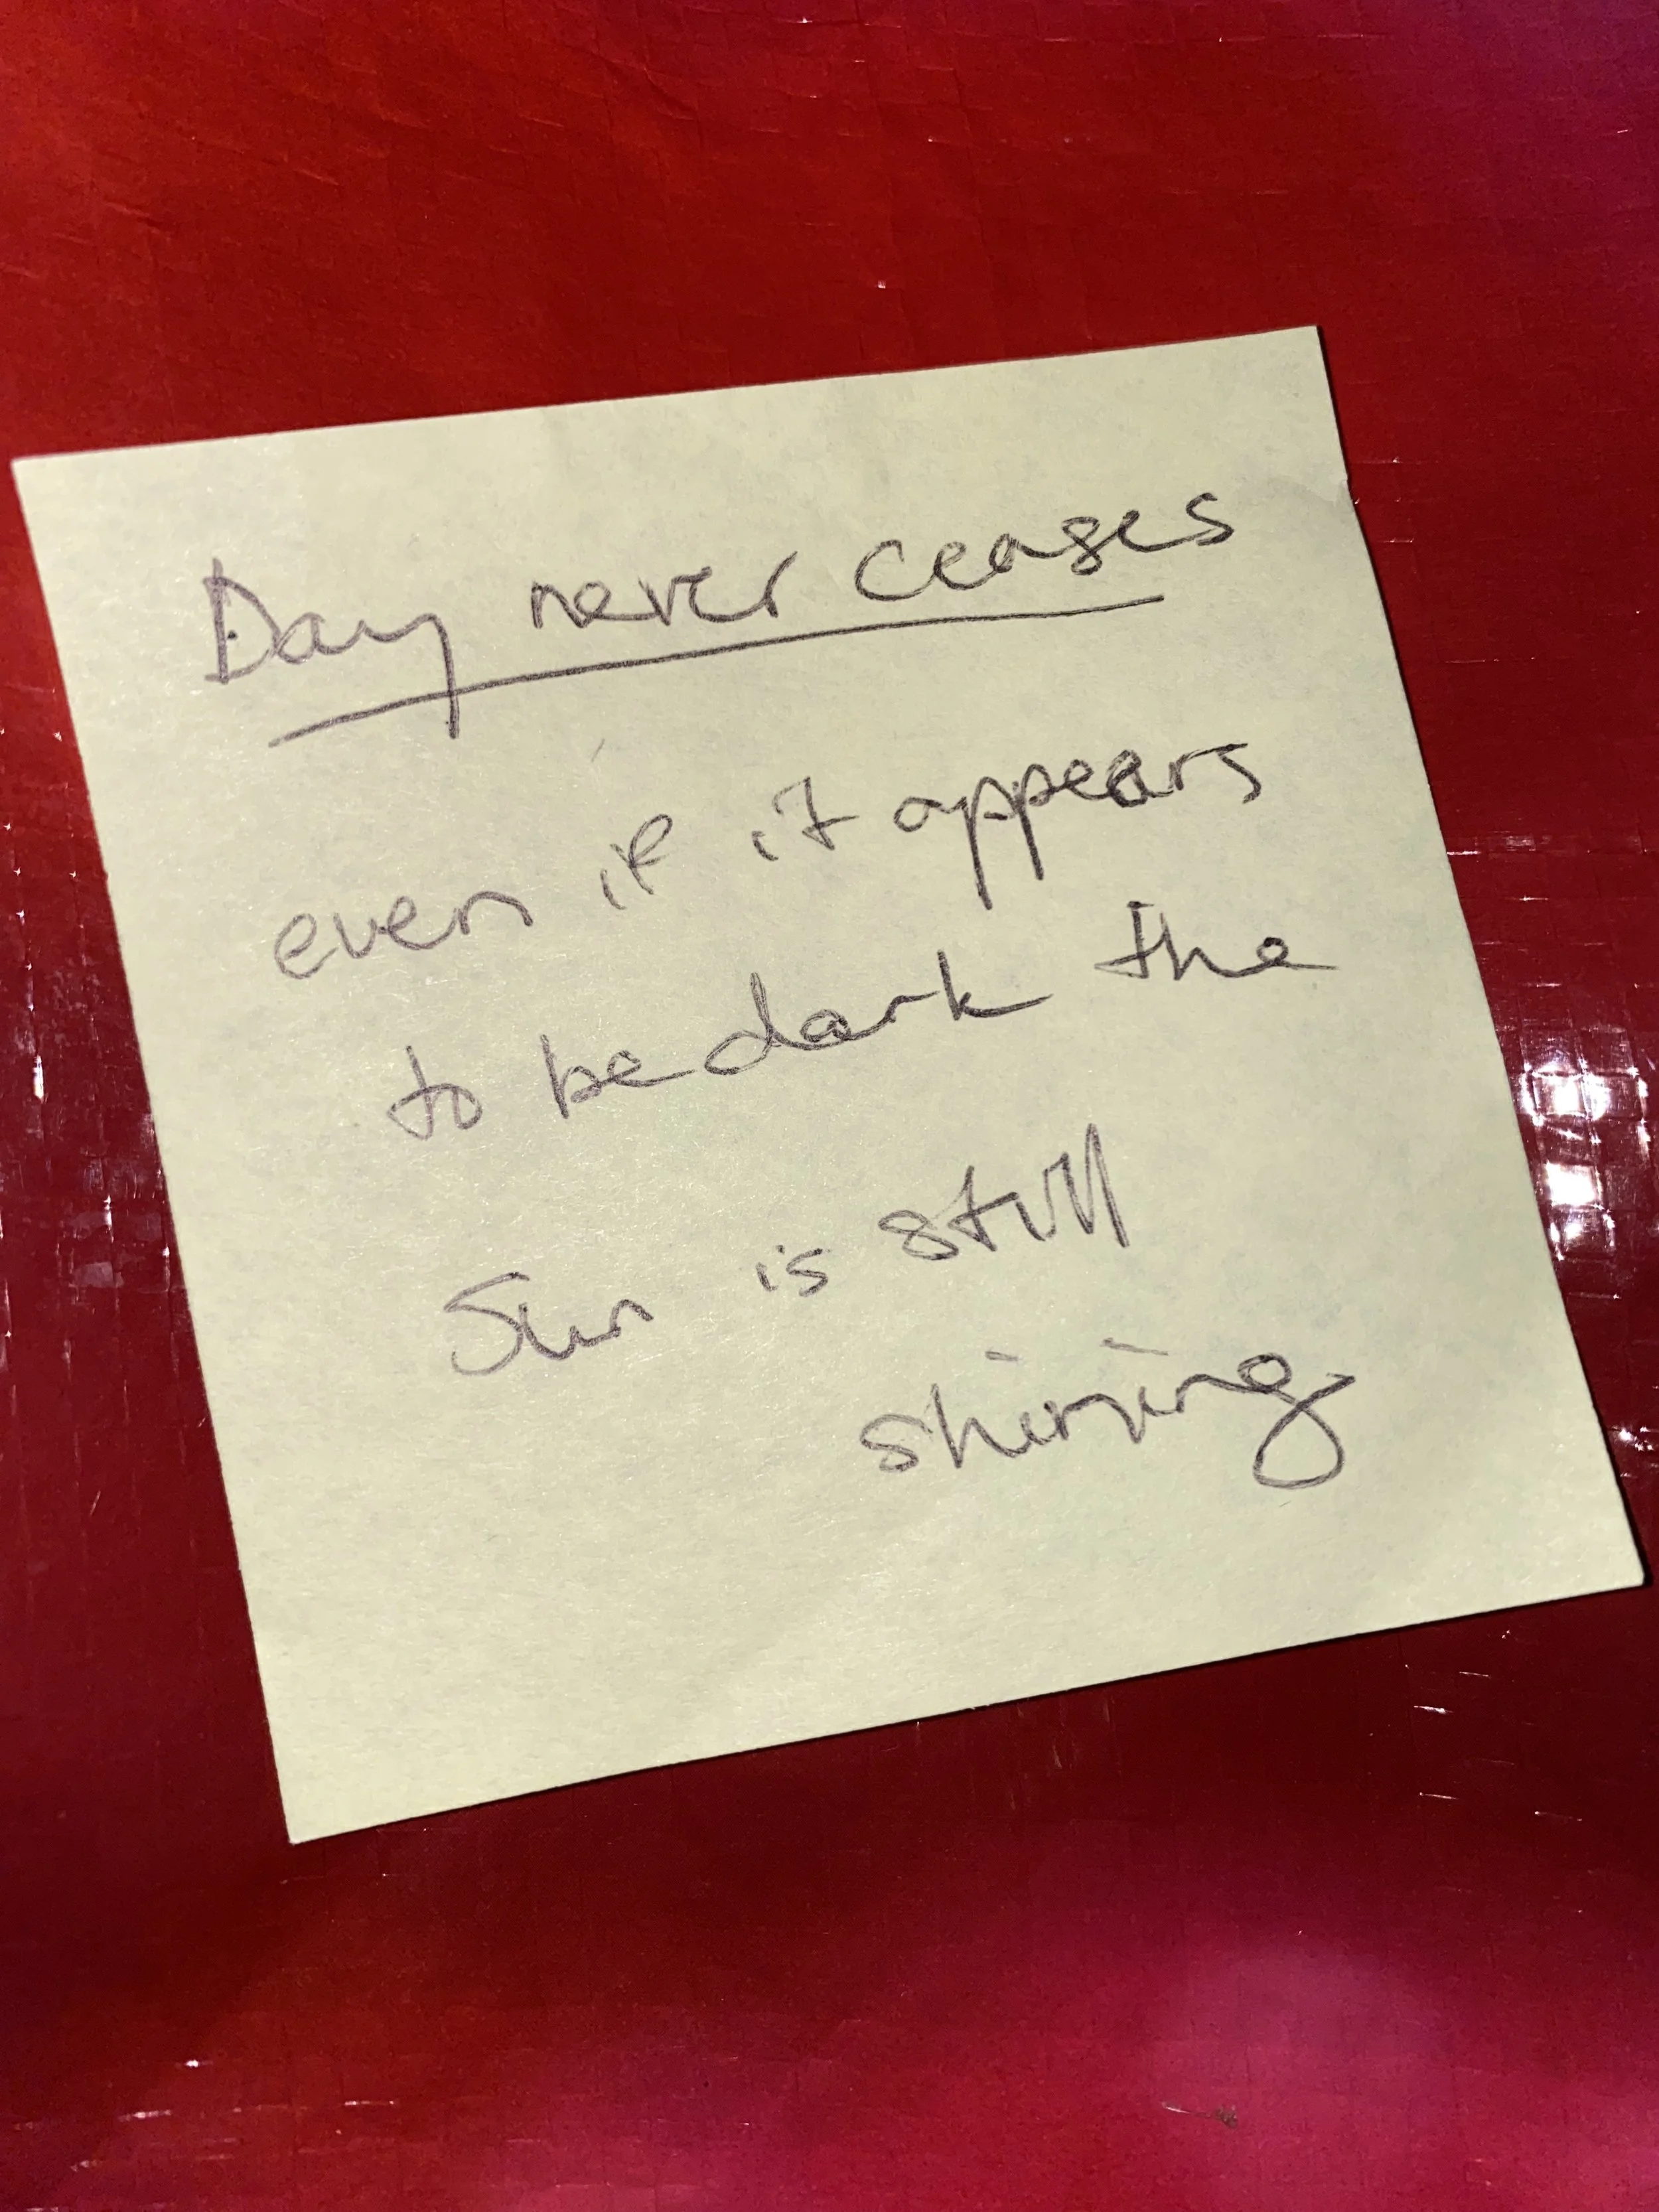 Day never ceases
even if it appears
to be dark the
Sun is still
shining